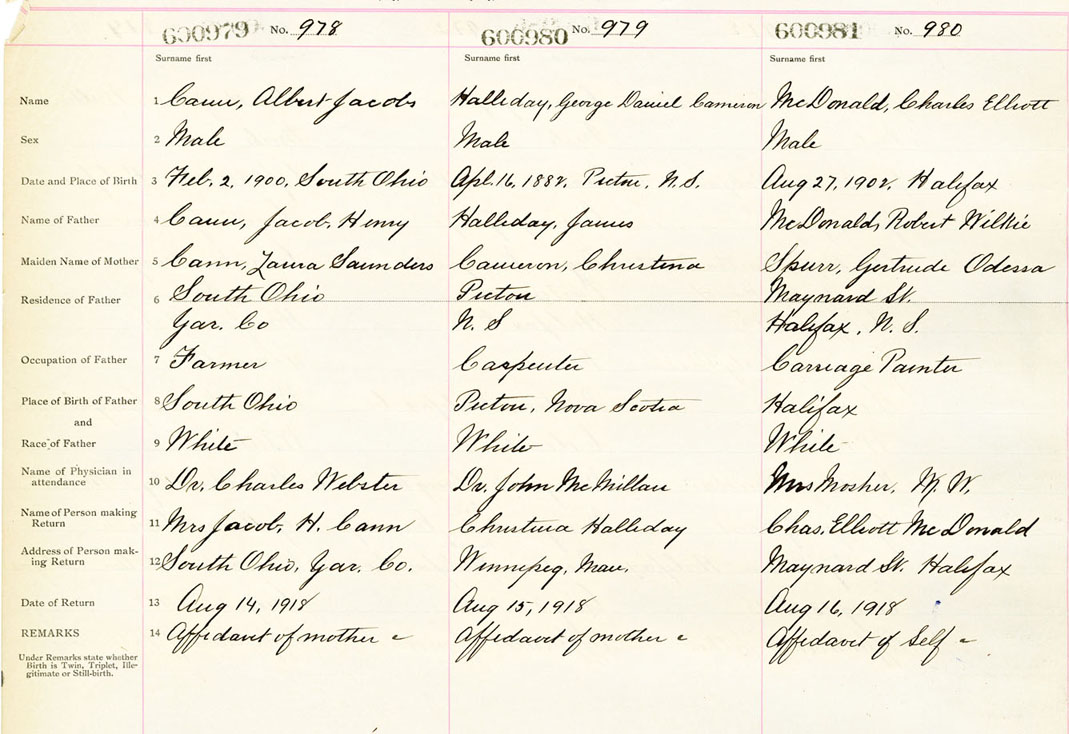 600979 No. 978 600980 No. 979 600981 No. 980
Surname first Surname first Surname first
Name 1 Cann, Albert Jacobs Halliday, George Daniel Cameron McDonald, Charles Elliott
Sex 2 Male Male Male
Date and Place of Birth 3 Feb. 2, 1900, South Ohio Apl. 16, 1882, Pictou, N.S. Aug 27, 1902, Halifax
Name of Father 4 Cann, Jacob, Henry Halliday, James McDonald, Robert Wilkie
Maiden Name of Mother 5 Cann, Laura Saunders Cameron, Christena Spurr, Gertrude Odessa
Residence of Father 6 South Ohio Pictou Maynard St.
Yar. Co N. S Halifax, N. S.
Occupation of Father 7 Farmer Carpenter Carriage Painter
Place of Birth of Father 8 South Ohio Pictou, Nova Scotia Halifax
and
Race of Father 9 White White White
Name of Physician in
attendance 10 Dr. Charles Webster Dr. John McMillan Mrs Mosher, M. W.
Name of Person making
Return 11 Mrs Jacob, H. Cann Christena Halliday Chas. Elliott McDonald
Address of Person mak-
ing Return 12 South Ohio, Yar. Co. Winnipeg, Man. Maynard St. Halifax
Date of Return 13 Aug 14, 1918 Aug 15, 1918 Aug 16, 1918
REMARKS 14 Affidavit of mother Affidavit of mother Affidavit of Self
Under Remarks state whether
Birth is Twin, Triplet, Ille-
gitimate or Still-birth.